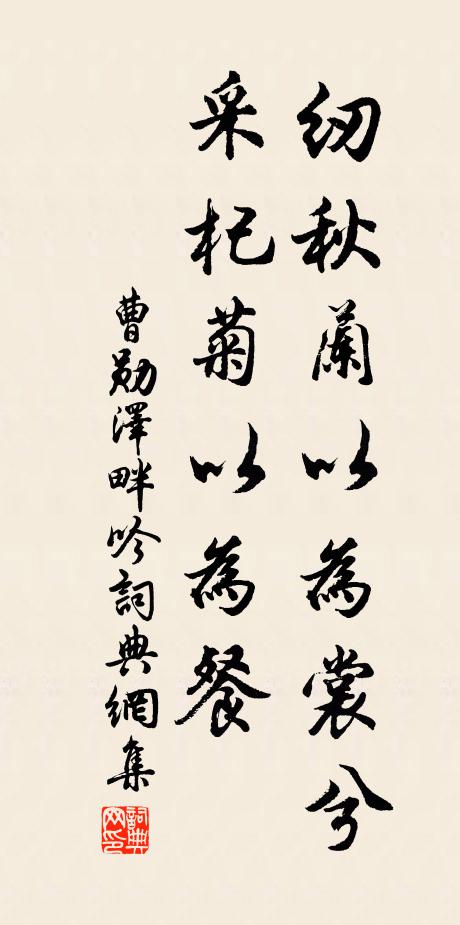 紉秋蘭以為裳兮
采杞菊以為餐
曹勛澤畔吟詞典網集
詞典网印